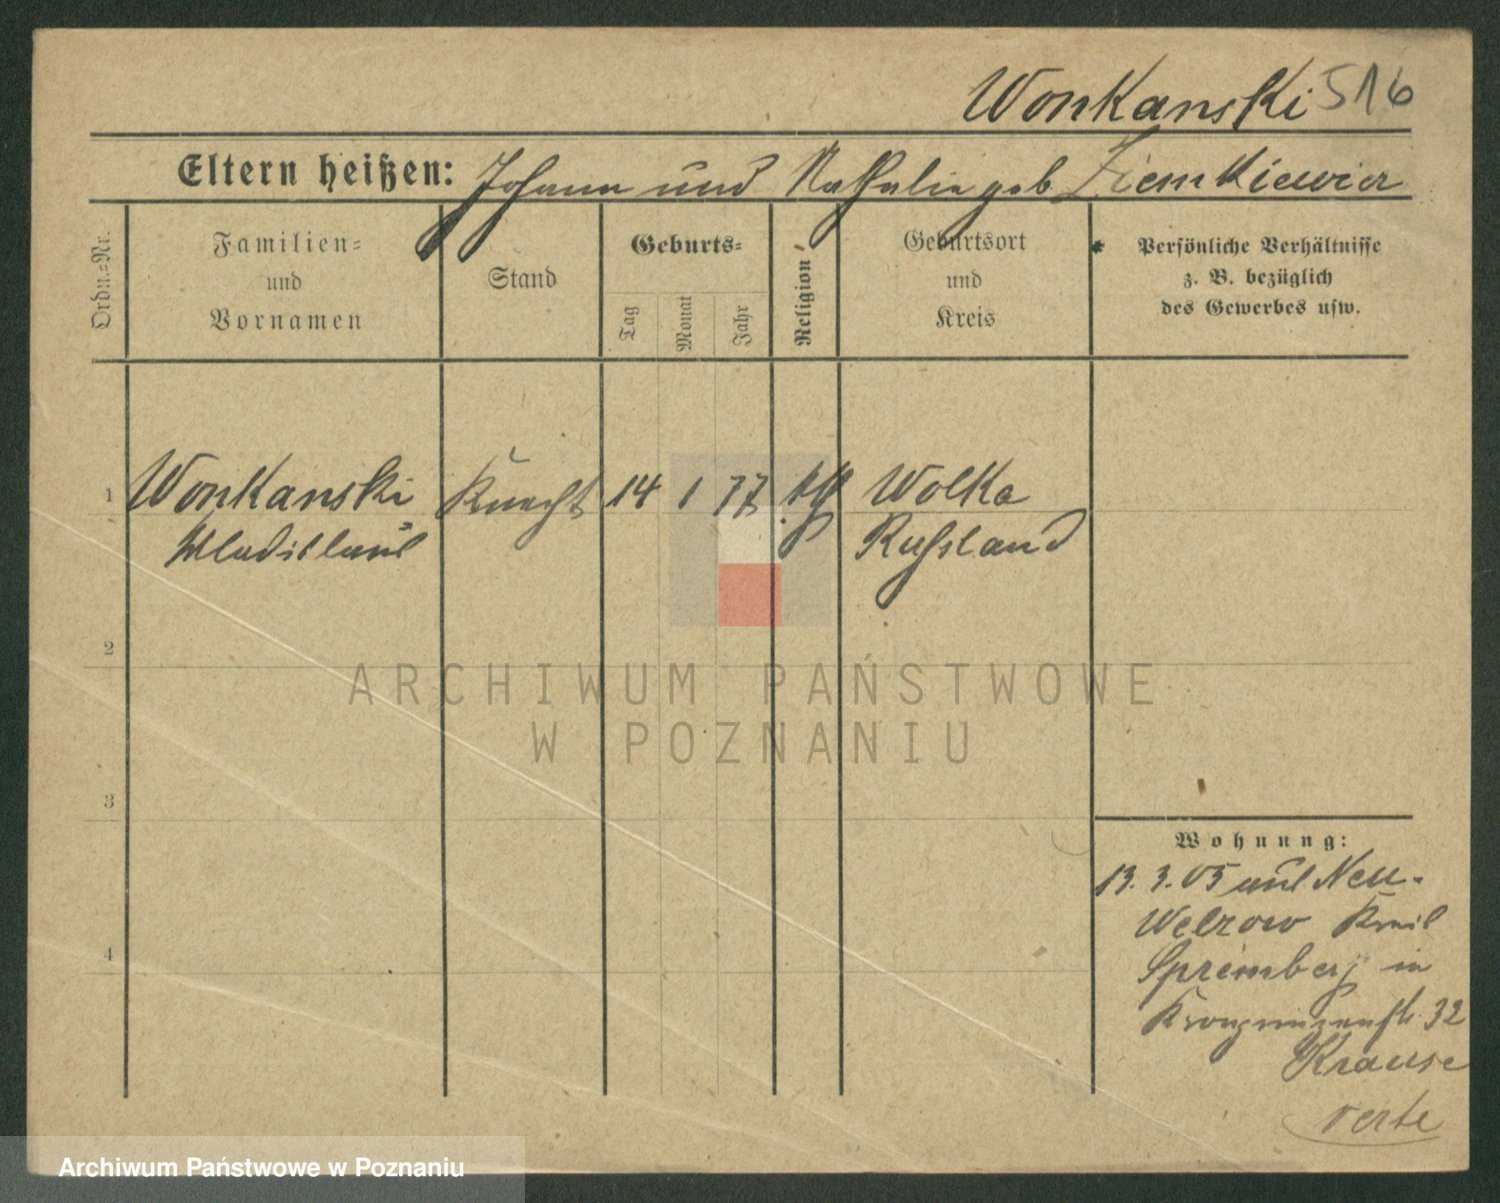 Wonkanski 516
Eltern heißen: Johann und Nathalie geb Ziemkiewicz
Ordn.-Nr.
Familien-
und
Vornamen
Stand
Geburts-
Tag
Monat
Jahr
Religion
Geburtsort
und
Kreis
* Persönliche Verhältnisse
z. B. bezüglich
des Gewerbes usw.
1 Wonkanski Knecht 14 1 77 Wolka
Wladislaus Russland
2
3
4
Wohnung:
13. 3. 05 aus Neu-
Welzow Kreis
Spremberg in
Kronprinzenstr. 32
Krause
verte
ARCHIWUM PAŃSTWOWE
W POZNANIU
Archiwum Państwowe w Poznaniu